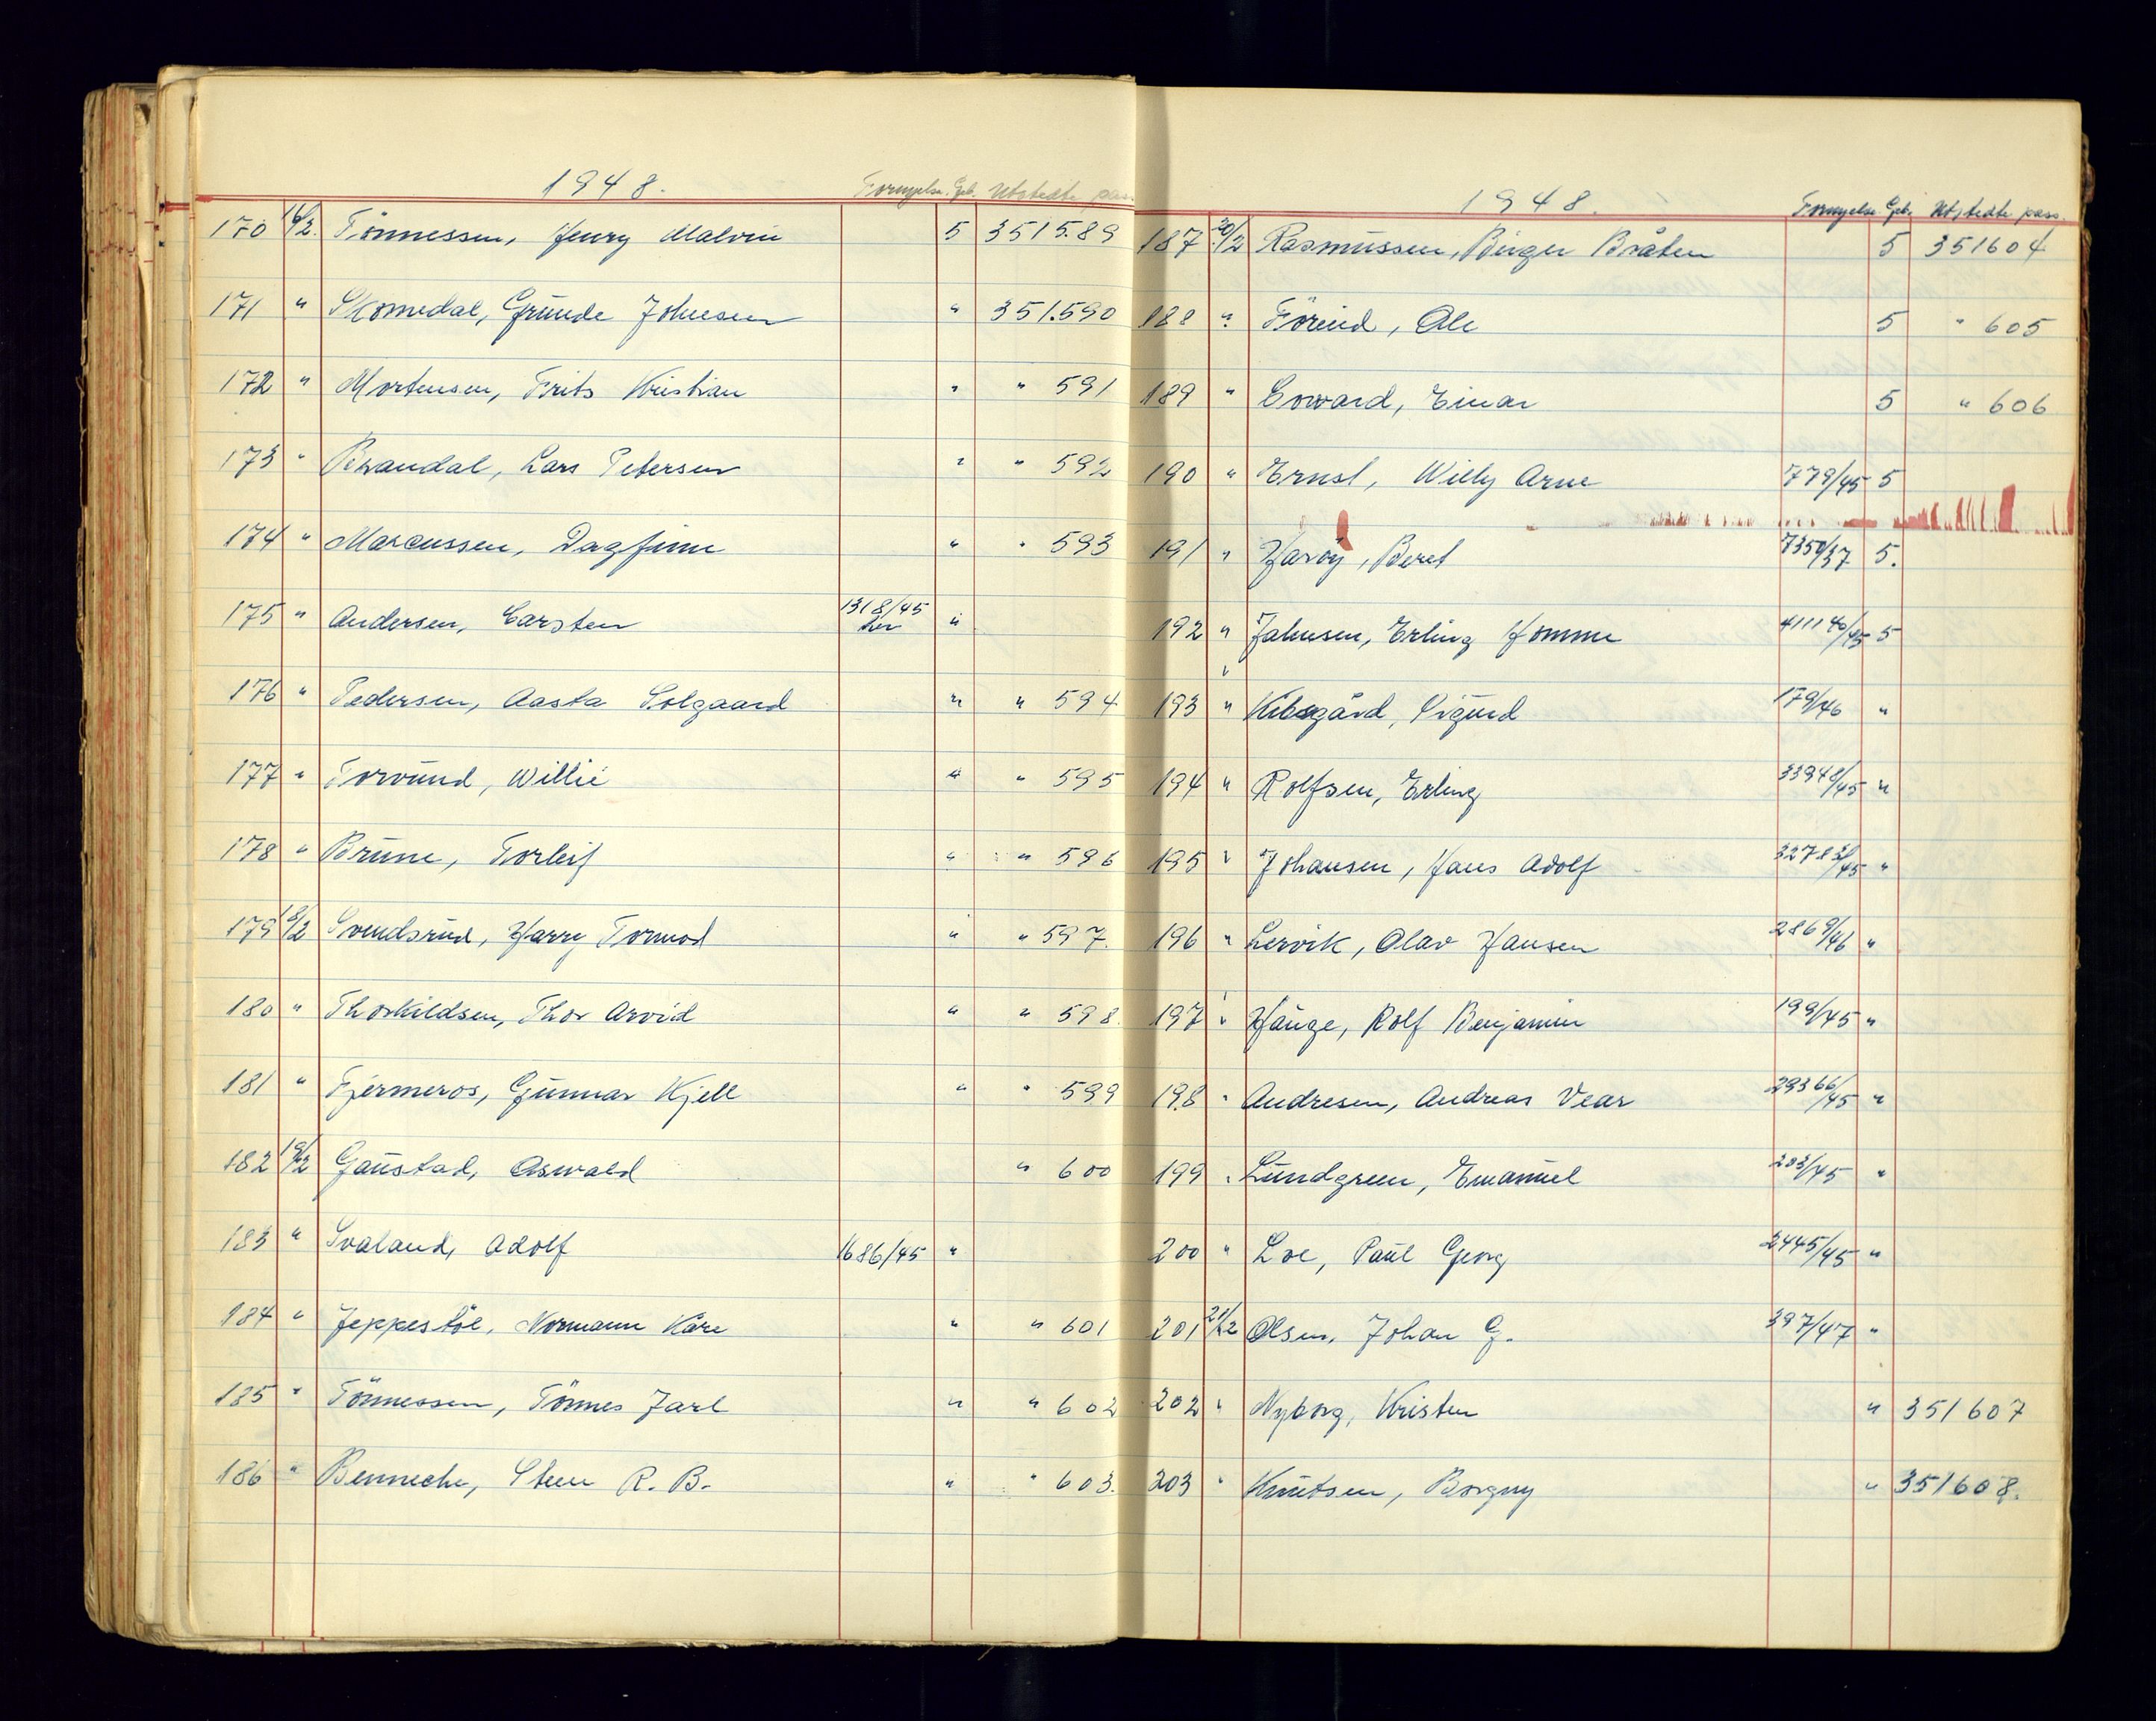 1948. Fornyelse. Geb. Utstedte pass.
170 16/2. Tönnessen, Henry Malvin 5 351589
171 " Skomedal, Grunde Johnsen " 351.590
172 " Mortensen, Frits Kristian " " 591
173 " Lars Petersen " " 592
174 " Marcussen, Dagfinn " " 593
175 " Andersen, Carsten 1318/45 her "
176 " Pedersen, Aasta Solgaard " " 594
177 " Torvund, Willie " " 595
178 " Brune, Torleif " " 596
179 18/2 Svendsrud, Harry Tormod " " 597.
180 " Thorkildsen, Thor Arvid " " 598.
181 " Fjermeros, Gunnar Kjell " " 599
182 19/2 Gaustad, Oswald " 600
183 " Svaland, Adolf 1686/45 "
184 " Jeppestöl, Normann Kåre " " 601
185 " Tönnessen, Tönnes Jarl " " 602
186 " Benneche, Steen R. B. " " 603.
1948. Fornyelse Geb. Utstedte pass.
187 20/2 Rasmussen, Birger Bråten 5 351604
188 " Ole 5 " 605
189 " Coward, Einar 5 " 606
190 " Ernst, Willy Arne 779/45 5
191 " Haröy, Beret 7350/37 5.
192 " Jahnsen, Erling Homme 41140/45 5
193 " Kibsgård, Sigurd 179/46 "
194 " Rolfsen, Erling 33948/45 "
195 " Johansen, Hans Adolf "
196 " Lervik, Olav Hansen 2869/46 "
197 " Hauge, Rolf Benjamin 199/45 "
198 " Andresen, Andreas Vear 29366/45 "
199 " Lundgreen, Emanuel 203/45 "
200 " Loe, Paul Georg 2445/45 "
201 21/2 Olsen, Johan G. 397/47 "
202 " Nyborg, Kristen " 351607
203 " Knutsen, Borgny " 351608.